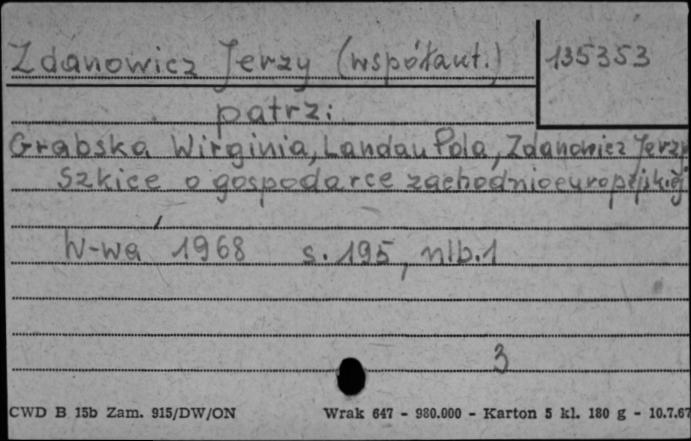 Zdanowicz Jerzy (współaut.) 135353
patrz:
Grabska Wirginia, Landau Pola, Zdanowicz Jerzy
Szkice o gospodarce zachodnioeuropejskiej
W-wa 1968 s. 195, nlb. 1
3
CWD B 15b Zam. 915/DW/ON Wrak 647 - 980.000 - Karton 5 kl. 180 g - 10.7.67